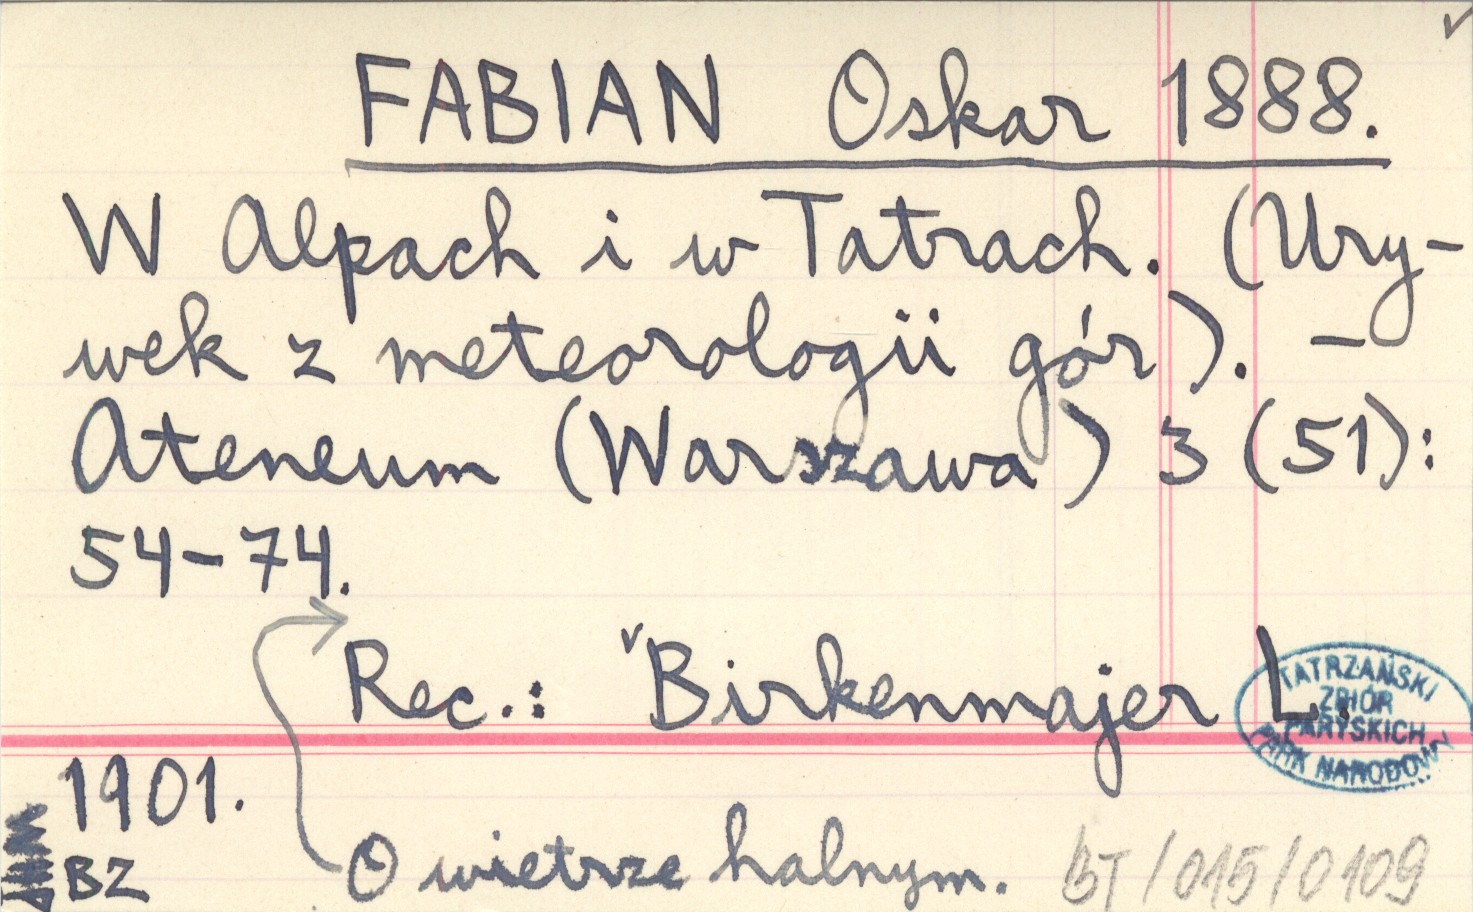 FABIAN Oskar 1888.
W Alpach i w Tatrach. (Ury-
wek z meteorologii gór). –
Ateneum (Warszawa) 3 (51):
54–74.
Rec.: Birkenmajer L.
1901.
O wietrze halnym.
BZ
BT/015/0109
TATRZAŃSKI
ZBIÓR
PARYSKICH
PARK NARODOWY